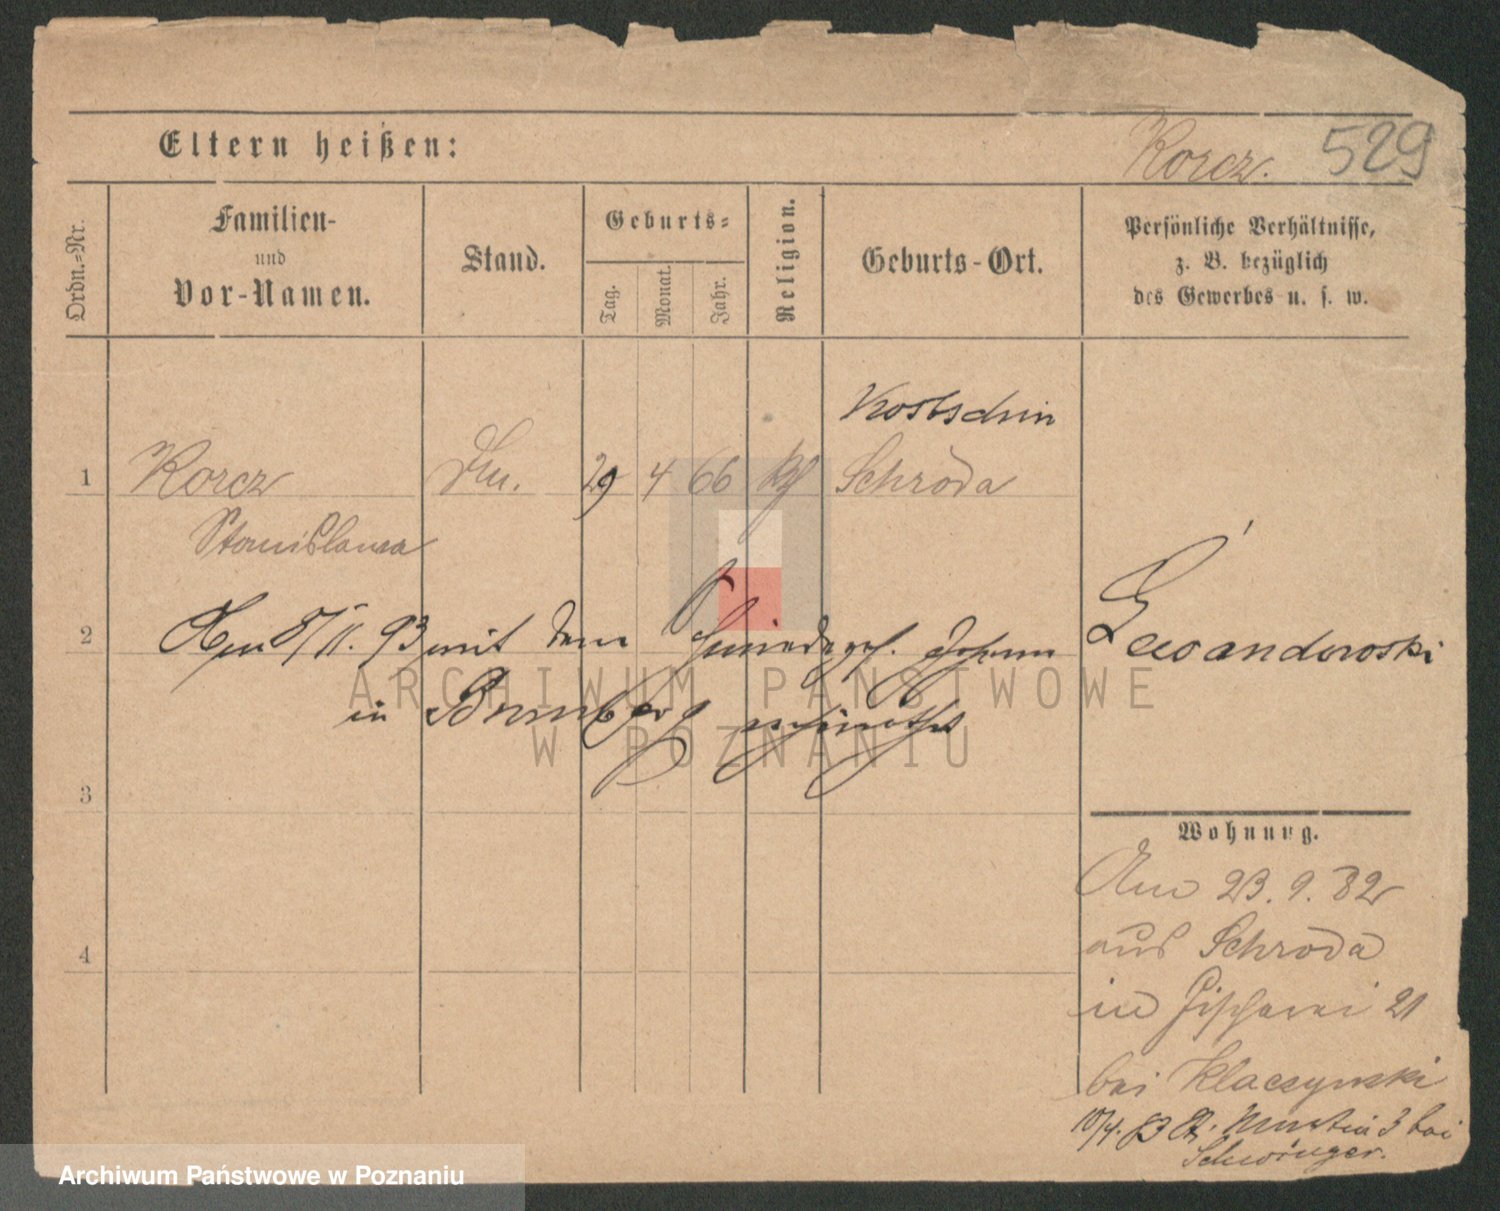 Eltern heißen:
Korcz. 529
Ordn.=Nr.
Familien-
und
Vor-Namen.
Stand.
Geburts=
Tag.
Monat.
Jahr.
Religion.
Geburts-Ort.
Persönliche Verhältnisse,
z. B. bezüglich
des Gewerbes u. s. w.
Kostschin
1 Korcz 29 4 66 kh Schroda
Stanislawa
2 Am 8/II. 93 mit dem Johann Lewandowski
in Bromberg
3
Wohnung.
Am 23. 9. 82
aus Schroda
4
in Fischerei 21
bei Klaczynski
10/4. 83 St. Martin 3 bei
Schwinger.
ARCHIWUM PAŃSTWOWE
W POZNANIU
Archiwum Państwowe w Poznaniu